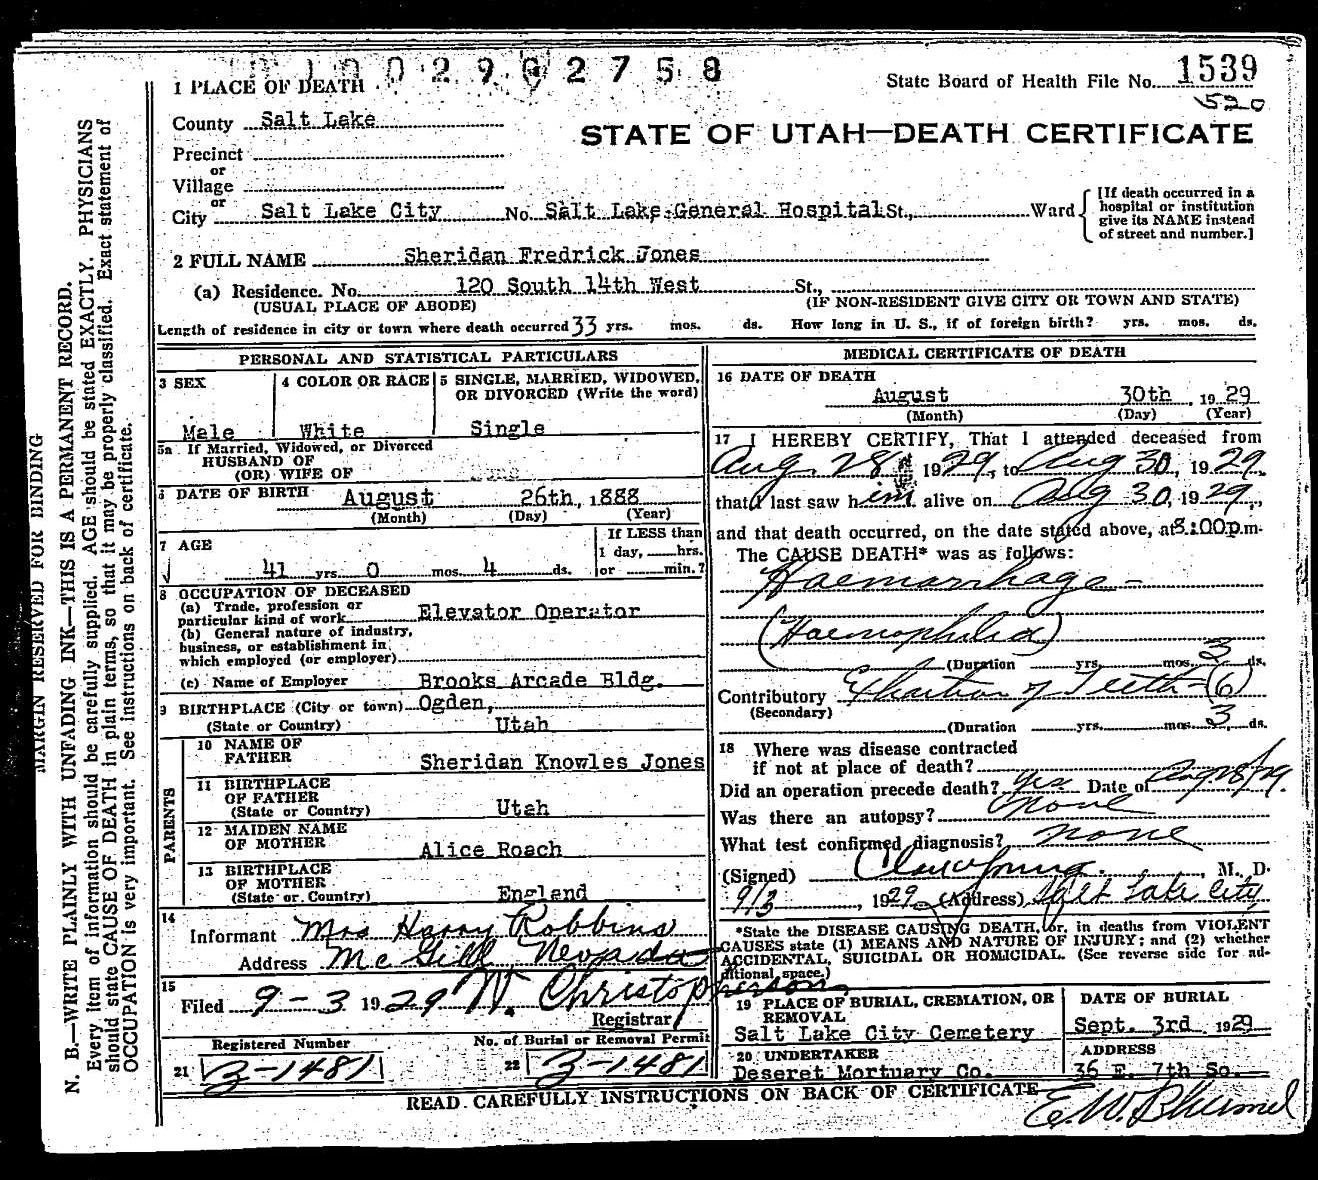 1002902758
1 PLACE OF DEATH
State Board of Health File No. 1539
520
County Salt Lake
STATE OF UTAH—DEATH CERTIFICATE
Precinct
or
Village
or
City Salt Lake City No. Salt Lake General Hospital St., Ward
[If death occurred in a hospital or institution give its NAME instead of street and number.]
2 FULL NAME Sheridan Fredrick Jones
(a) Residence. No. 120 South 14th West St.,
(USUAL PLACE OF ABODE) (IF NON-RESIDENT GIVE CITY OR TOWN AND STATE)
Length of residence in city or town where death occurred 33 yrs. mos. ds. How long in U. S., if of foreign birth? yrs. mos. ds.
PERSONAL AND STATISTICAL PARTICULARS
3 SEX 4 COLOR OR RACE 5 SINGLE, MARRIED, WIDOWED,
OR DIVORCED (Write the word)
Male White Single
5a If Married, Widowed, or Divorced
HUSBAND OF
(OR) WIFE OF
6 DATE OF BIRTH August 26th, 1888
(Month) (Day) (Year)
7 AGE If LESS than
1 day, hrs.
41 yrs. 0 mos. 4 ds. or min.?
8 OCCUPATION OF DECEASED
(a) Trade, profession or
particular kind of work Elevator Operator
(b) General nature of industry,
business, or establishment in
which employed (or employer)
(c) Name of Employer Brooks Arcade Bldg.
9 BIRTHPLACE (City or town) Ogden,
(State or Country) Utah
PARENTS
10 NAME OF
FATHER Sheridan Knowles Jones
11 BIRTHPLACE
OF FATHER
(State or Country) Utah
12 MAIDEN NAME
OF MOTHER Alice Roach
13 BIRTHPLACE
OF MOTHER
(State or Country) England
14
Informant Mrs Harry Robbins
Address McGill Nevada
15
Filed 9-3 1929 W. Christopherson
Registrar
Registered Number No. of Burial or Removal Permit
21 3-1481 22 3-1481
MEDICAL CERTIFICATE OF DEATH
16 DATE OF DEATH
August 30th, 1929
(Month) (Day) (Year)
17 I HEREBY CERTIFY, That I attended deceased from
Aug. 28, 1929, to Aug 30, 1929,
that I last saw him alive on Aug 30, 1929,
and that death occurred, on the date stated above, at 8:00 p.m.
The CAUSE DEATH* was as follows:
Haemorrhage -
(Haemophilia)
(Duration yrs. mos. 3 ds.
Contributory Extraction of Teeth - (6)
(Secondary)
(Duration yrs. mos. 3 ds.
18 Where was disease contracted
if not at place of death?
Did an operation precede death? Yes Date of Aug 28/29.
Was there an autopsy? none
What test confirmed diagnosis? none
(Signed) , M. D.
9/3, 1929 (Address) Salt Lake City
*State the DISEASE CAUSING DEATH, or, in deaths from VIOLENT
CAUSES state (1) MEANS AND NATURE OF INJURY; and (2) whether
ACCIDENTAL, SUICIDAL OR HOMICIDAL. (See reverse side for ad-
ditional space.)
19 PLACE OF BURIAL, CREMATION, OR
REMOVAL
Salt Lake City Cemetery
DATE OF BURIAL
Sept. 3rd 1929
20 UNDERTAKER
Deseret Mortuary Co.
ADDRESS
36 E. 7th So.
READ CAREFULLY INSTRUCTIONS ON BACK OF CERTIFICATE
MARGIN RESERVED FOR BINDING
N. B.—WRITE PLAINLY WITH UNFADING INK—THIS IS A PERMANENT RECORD.
Every item of information should be carefully supplied. AGE should be stated EXACTLY. PHYSICIANS
should state CAUSE OF DEATH in plain terms, so that it may be properly classified. Exact statement of
OCCUPATION is very important. See instructions on back of certificate.